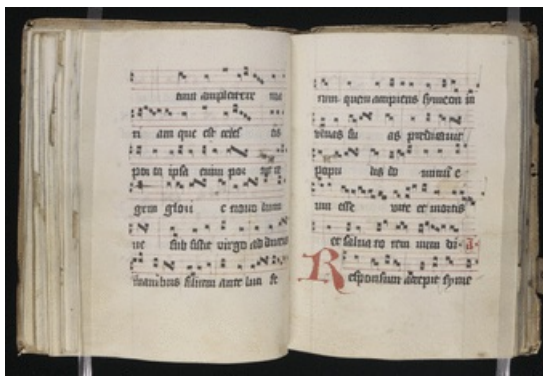 tum amplectere ma
ri am que est celes tis
por ta ipsa enim por tat re
gem glori e novo lumi
ne sub sistit virgo ad ducens
manibus filium ante luci fe
rum quem accipiens symeon in
ulnas su as predicavit
popu lis do minum e
um esse vite et mortis
et salva to rem mun di
Responsum accepit syme